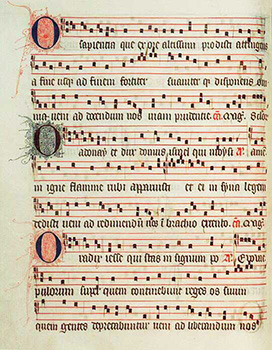 O sapientia que ex ore altissimi prodisti attingens
a fine usq; ad finem fortiter suaviter q; disponens om
nia veni ad docendum nos viam prudentie
O adonay et dux domus israel qui moysi
in igne flamme rubi apparuisti et ei in syna legem
dedisti veni ad redimendum nos i brachio extento
O radix iesse qui stas in signum po
pulorum super quem continebunt reges os suum
quem gentes deprecabuntur veni ad liberandum nos